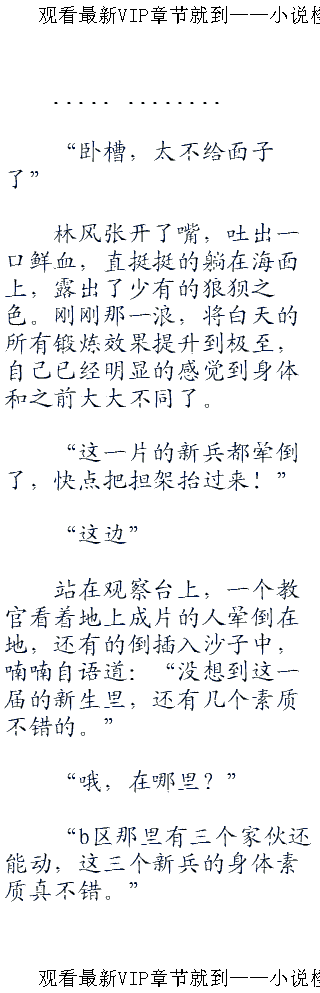 观看最新VIP章节就到——小说
..... ........
“卧槽，太不给面子
了”
林风张开了嘴，吐出一
口鲜血，直挺挺的躺在海面
上，露出了少有的狼狈之
色。刚刚那一浪，将白天的
所有锻炼效果提升到极至，
自己已经明显的感觉到身体
和之前大大不同了。
“这一片的新兵都晕倒
了，快点把担架抬过来！”
“这边”
站在观察台上，一个教
官看着地上成片的人晕倒在
地，还有的倒插入沙子中，
喃喃自语道：“没想到这一
届的新生里，还有几个素质
不错的。”
“哦，在哪里？”
“b区那里有三个家伙还
能动，这三个新兵的身体素
质真不错。”
观看最新VIP章节就到——小说